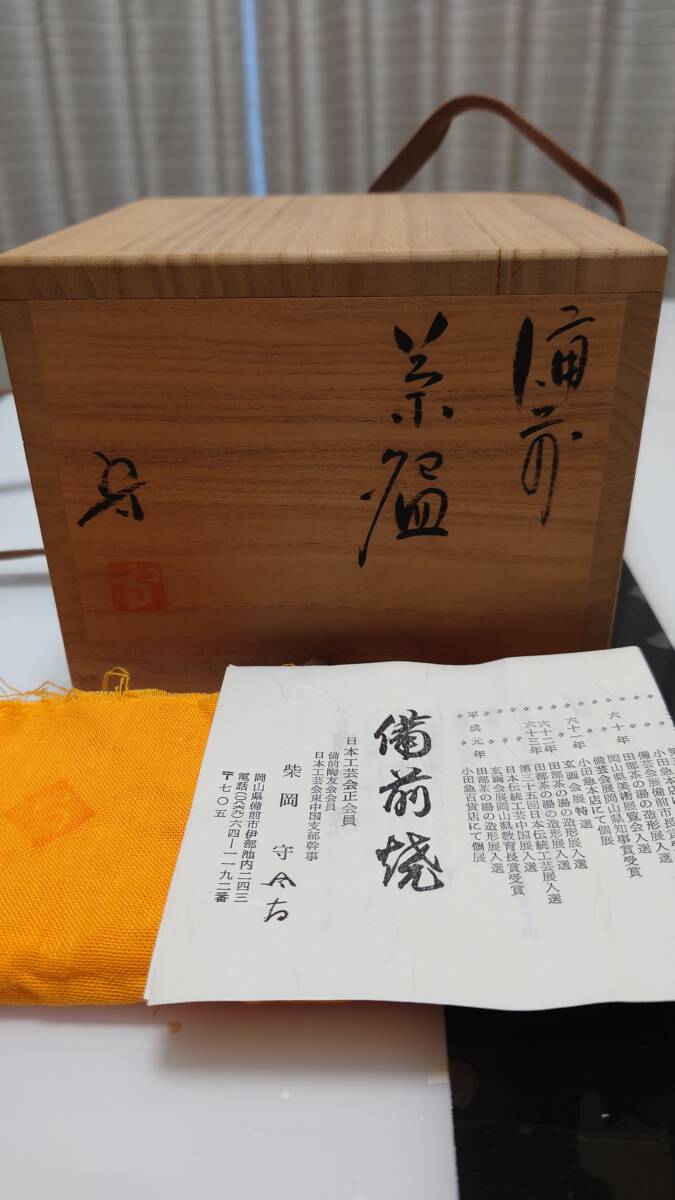 備前
茶盌
守
六十年
小田急本店にて個展
備芸会展備前市長賞受
田部茶の湯の造形展入
岡山県美術展覧会入選
備芸会展岡山県知事賞受賞
六十一年
小田急本店にて個展
玄画会展特選
田部茶の湯の造形展入選
六十二年
田部茶の湯の造形展入選
六十三年
第三十五回日本伝統工芸展入選
日本伝統工芸中国展入選
玄画会展岡山県教育長賞受賞
平成元年
田部茶の湯の造形展入選
小田急百貨店にて個展
備前焼
日本工芸会正会員
備前陶友会会員
日本工芸会東中国支部幹事
柴岡 守
岡山県備前市伊部池内二四三
電話(〇八六九)六四―一一九二番
〒七〇五